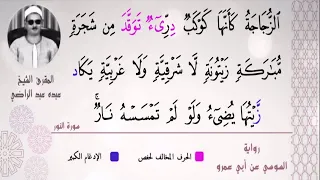 ٱلزُّجَاجَةُ كَأَنَّهَا كَوۡكَبٌ دِرِّيٓءٌ تَوَقَّدَ مِن شَجَرَةٖ
مُّبَٰرَكَةٖ زَيۡتُونَةٖ لَّا شَرۡقِيَّةٖ وَلَا غَرۡبِيَّةٖ يَكَاد
زَّيۡتُهَا يُضِيٓءُ وَلَوۡ لَمۡ تَمۡسَسۡهُ نَارٞۚ
المقرئ الشيخ
عبده عبد الراضي
سورة النور
رواية
السوسي عن أبي عمرو
الحرف المخالف لحفص
الإدغام الكبير